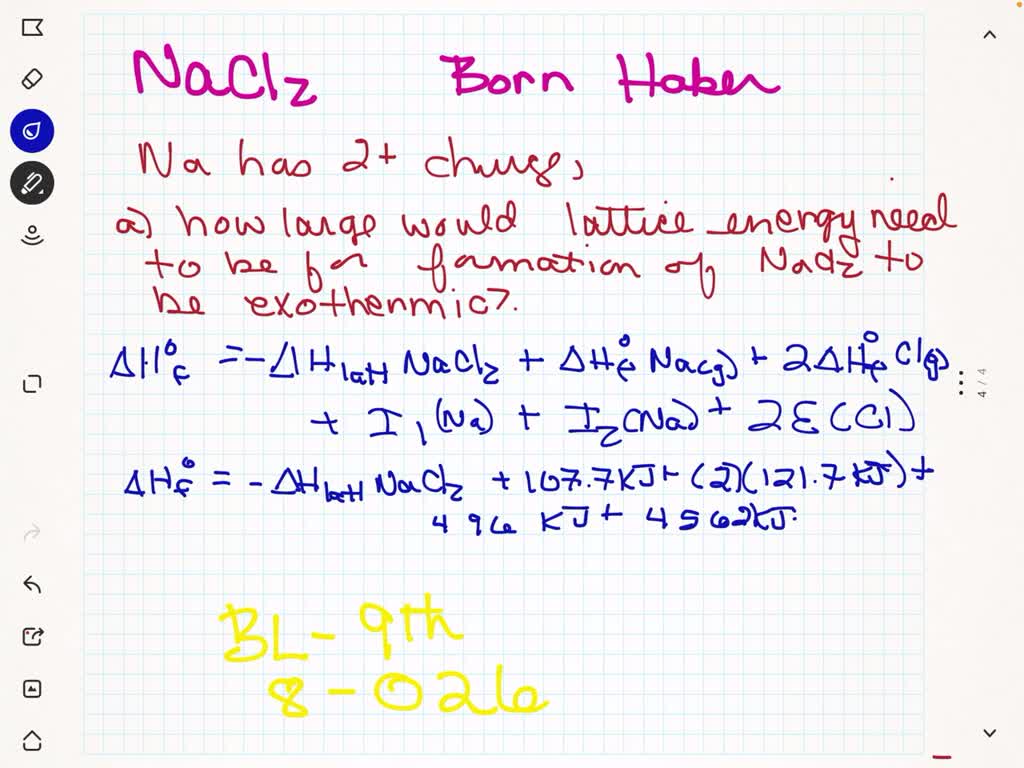 NaCl₂ Born Haber
Na has 2+ charge,
a) how large would lattice energy need
to be for formation of NaCl₂ to
be exothermic?
ΔH°f = -ΔHlatt NaCl₂ + ΔH°f Na(g) + 2ΔH°f Cl(g)
+ I₁(Na) + I₂(Na) + 2E(Cl)
ΔH°f = -ΔHlatt NaCl₂ + 107.7KJ + (2)(121.7 KJ) +
496 KJ + 4562KJ
BL - 9th
8 - 026
4 / 4